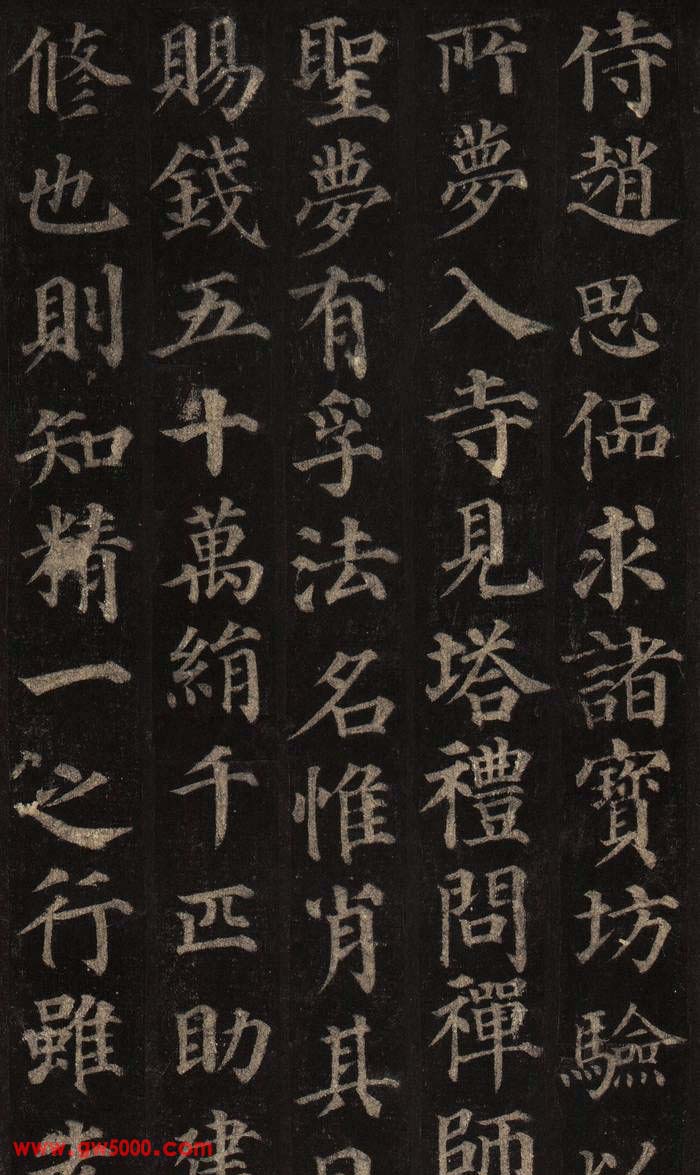 侍趙思侶求諸寶坊驗以
所夢入寺見塔禮問禪師
聖夢有孚法名惟肖其日
賜錢五十萬絹千匹助建
修也則知精一之行雖
www.gw5000.com